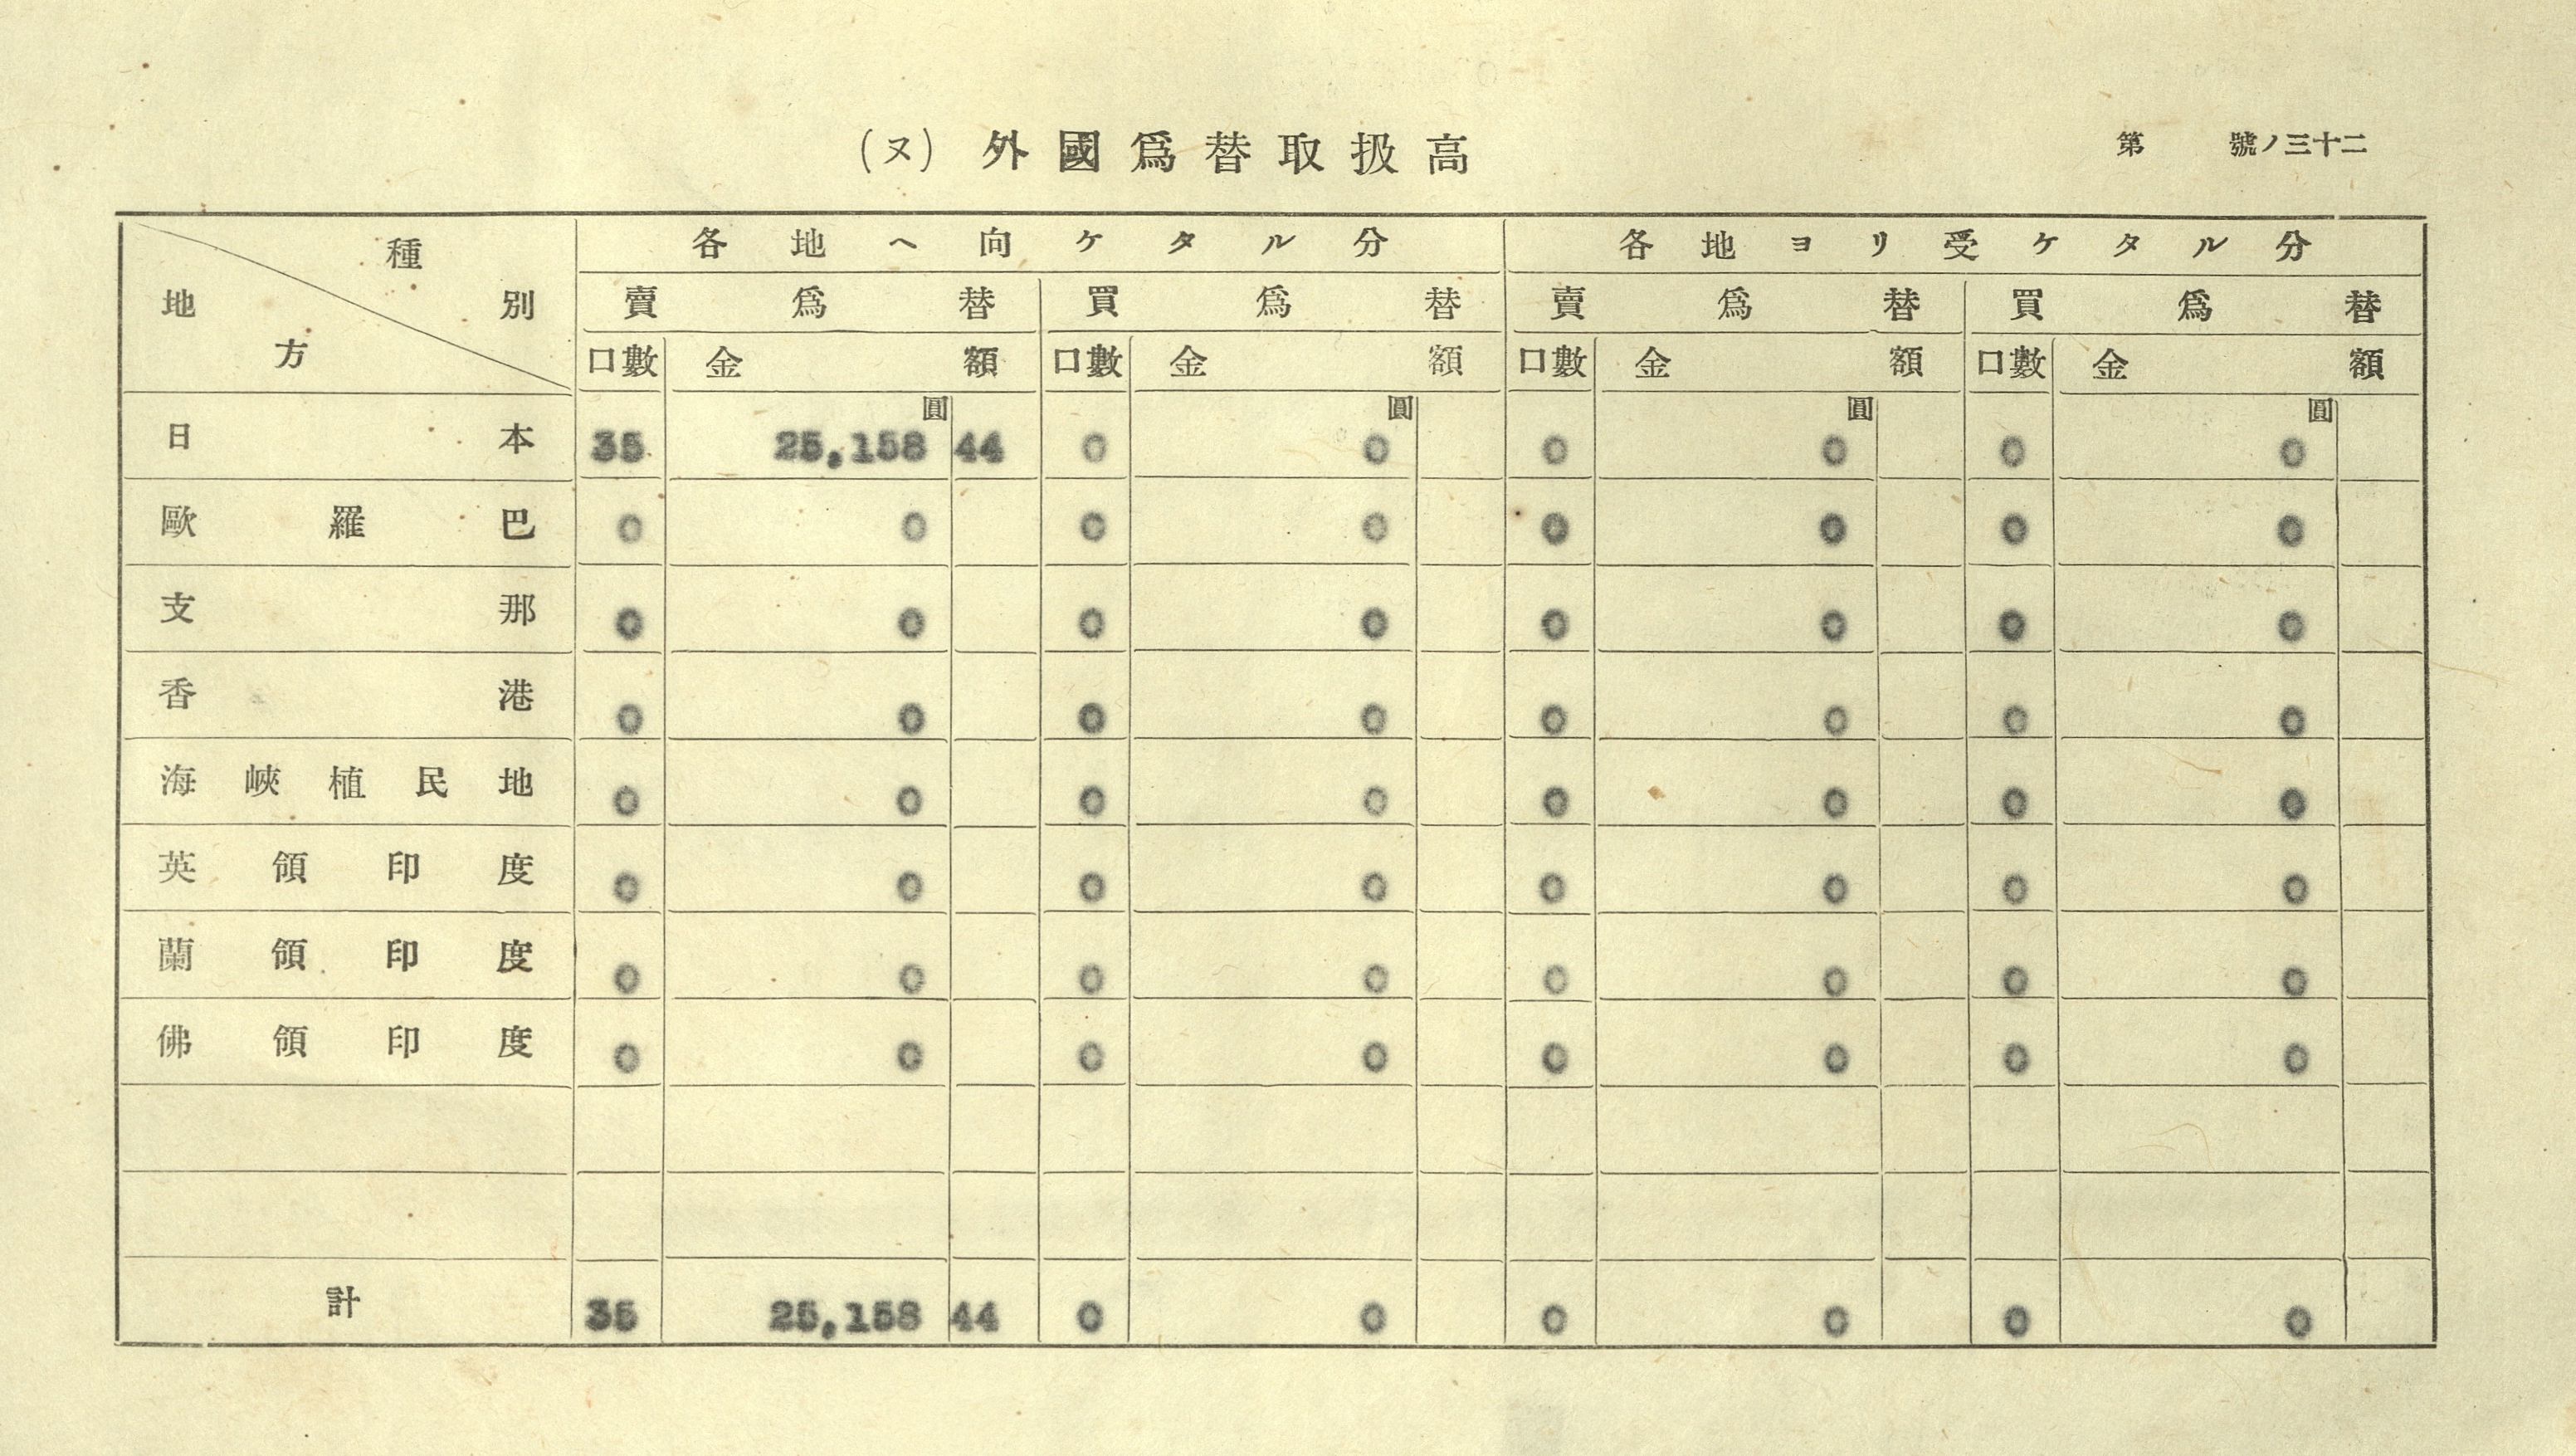 (ヌ) 外國爲替取扱高
第 號ノ三十二
種別 地方 各地ヘ向ケタル分 各地ヨリ受ケタル分
賣爲替 買爲替 賣爲替 買爲替
口數 金額 口數 金額 口數 金額 口數 金額
圓 圓 圓 圓
日本 35 25,158 44 0 0 0 0 0 0
歐羅巴 0 0 0 0 0 0 0 0
支那 0 0 0 0 0 0 0 0
香港 0 0 0 0 0 0 0 0
海峽植民地 0 0 0 0 0 0 0 0
英領印度 0 0 0 0 0 0 0 0
蘭領印度 0 0 0 0 0 0 0 0
佛領印度 0 0 0 0 0 0 0 0
計 35 25,158 44 0 0 0 0 0 0